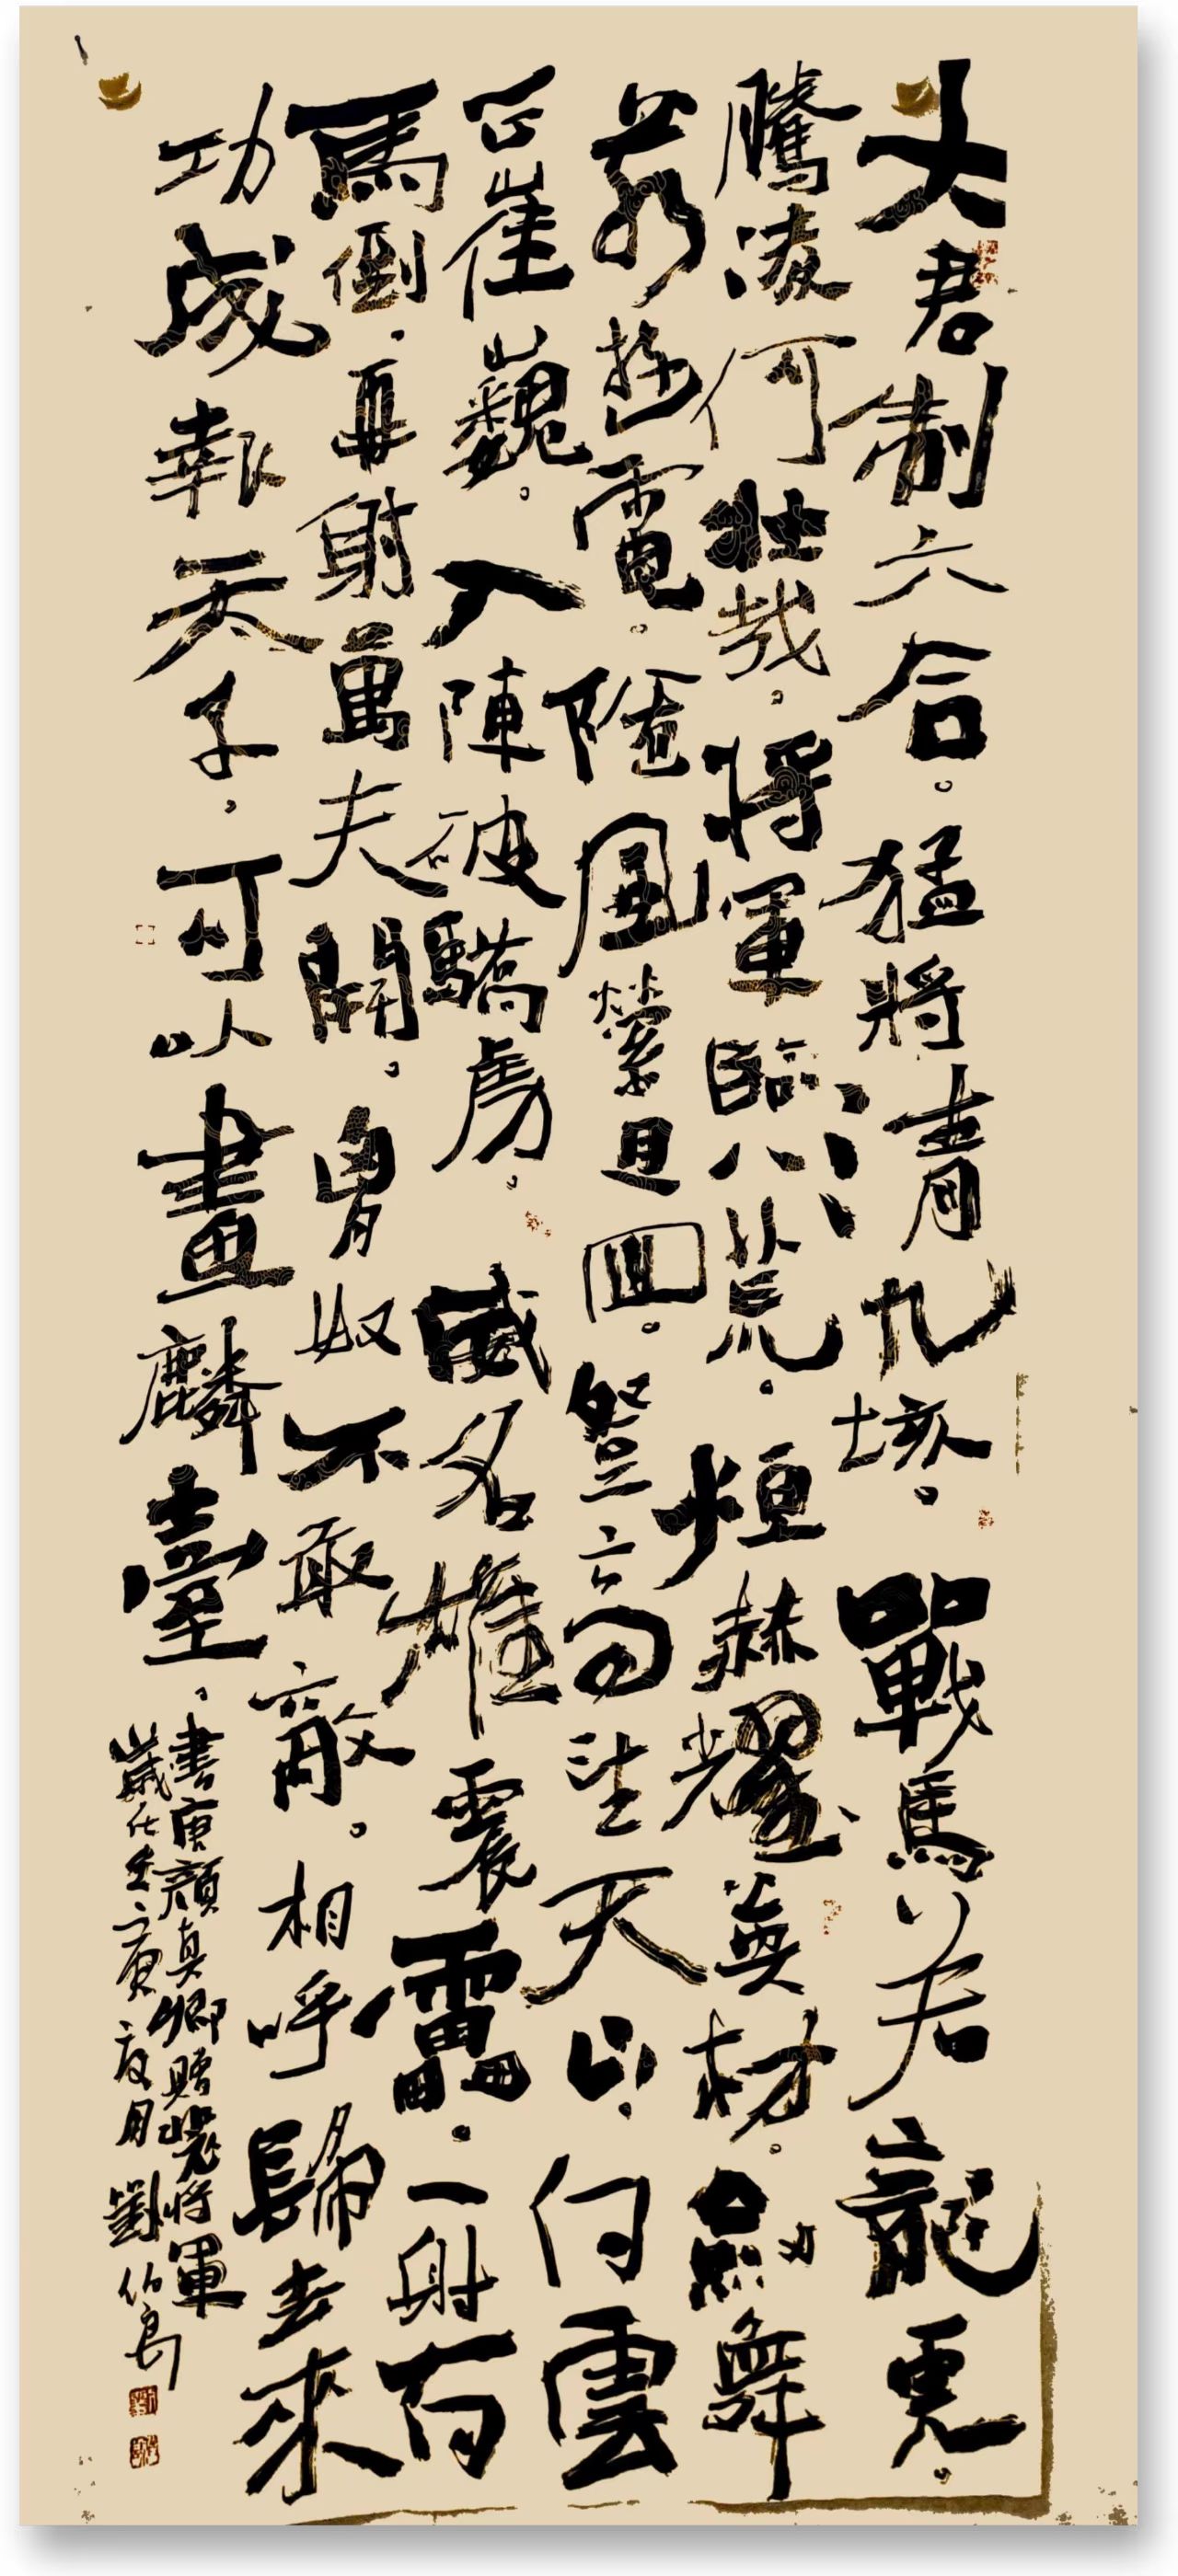 大君制六合。猛將清九垓。戰馬若龍虎。
騰凌何壯哉。將軍臨八荒。烜赫耀英材。劍舞
若遊電。隨風縈且回。登高望天山。白雲
正崔巍。入陣破驕虜。威名雄震雷。一射百
馬倒。再射萬夫開。匈奴不敢敵。相呼歸去來
功成報天子。可以畫麟臺。
書唐顏真卿贈裴將軍
歲在壬寅夏月劉伯